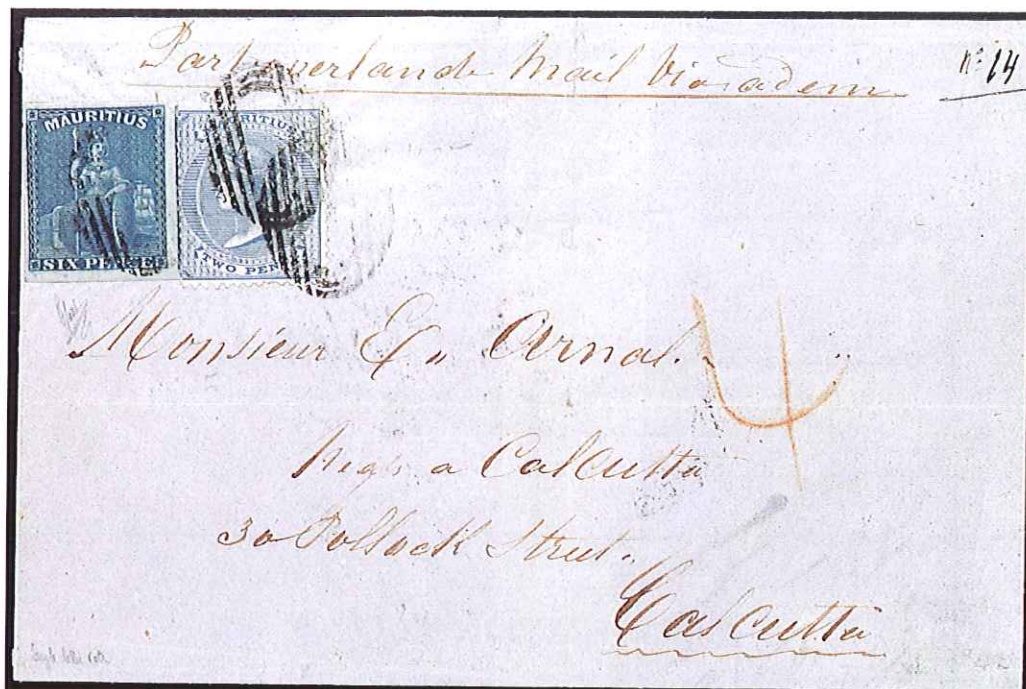 Par overlande Mail Via adem
n° 14
MAURITIUS
SIX PENCE
MAURITIUS
TWO PEN
Monsieur Ed. Arnal.
4
Negt a Calcutta
30 Pollock Street.
Calcutta